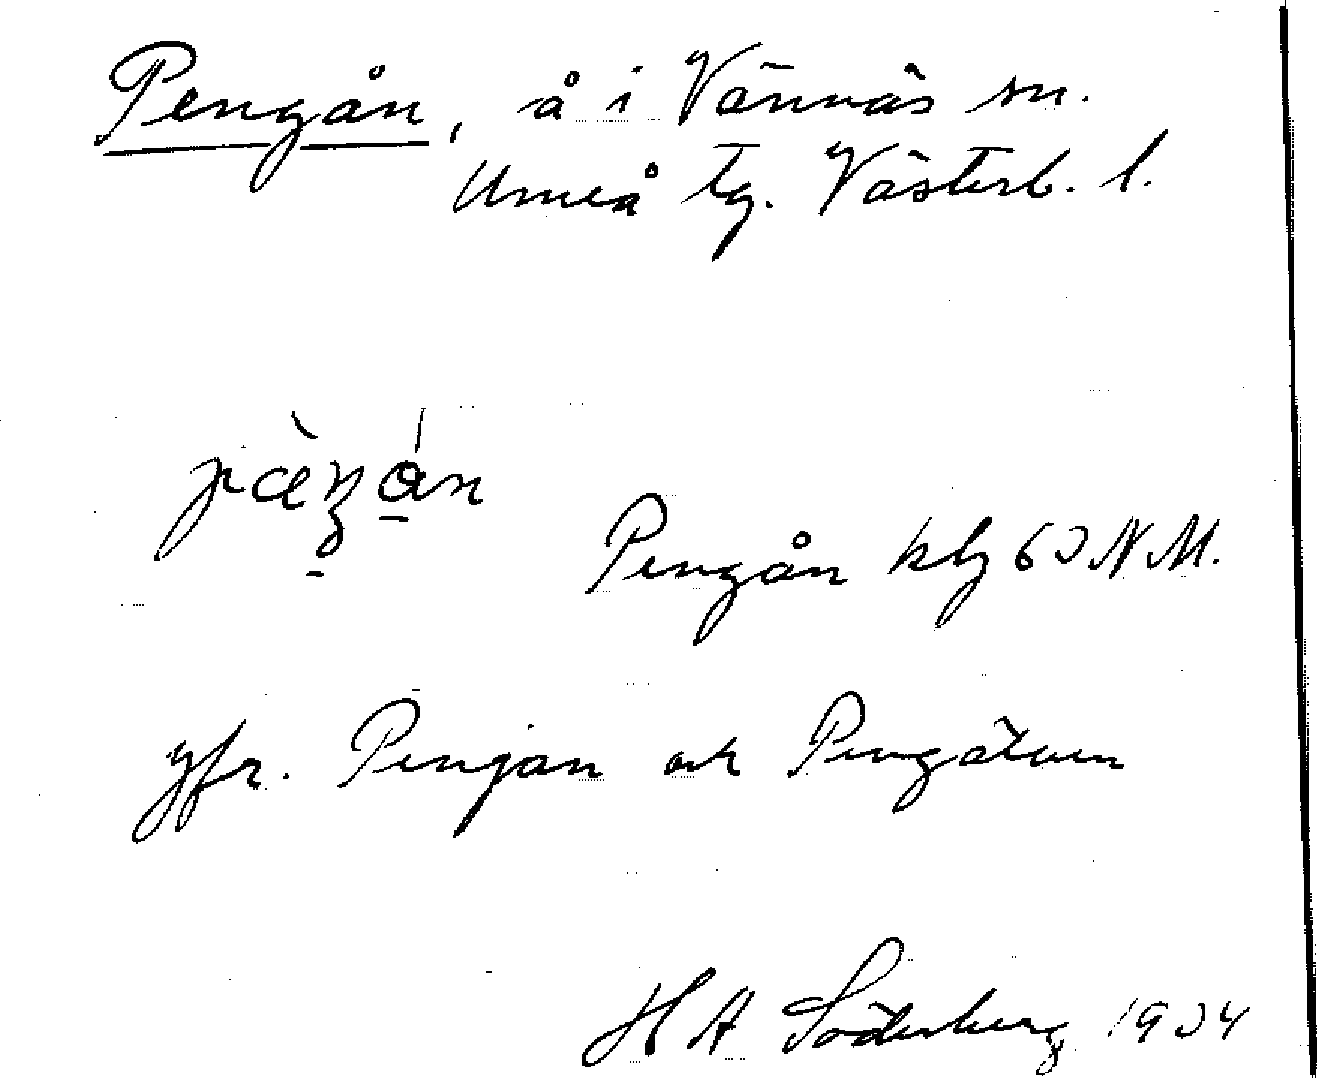 Pengån, å i Vännäs sn.
Umeå tg. Västerb. l.
Pengån kbl 60 N M.
Jfr. Penjan och Pengåtven
H A Söderberg 1934